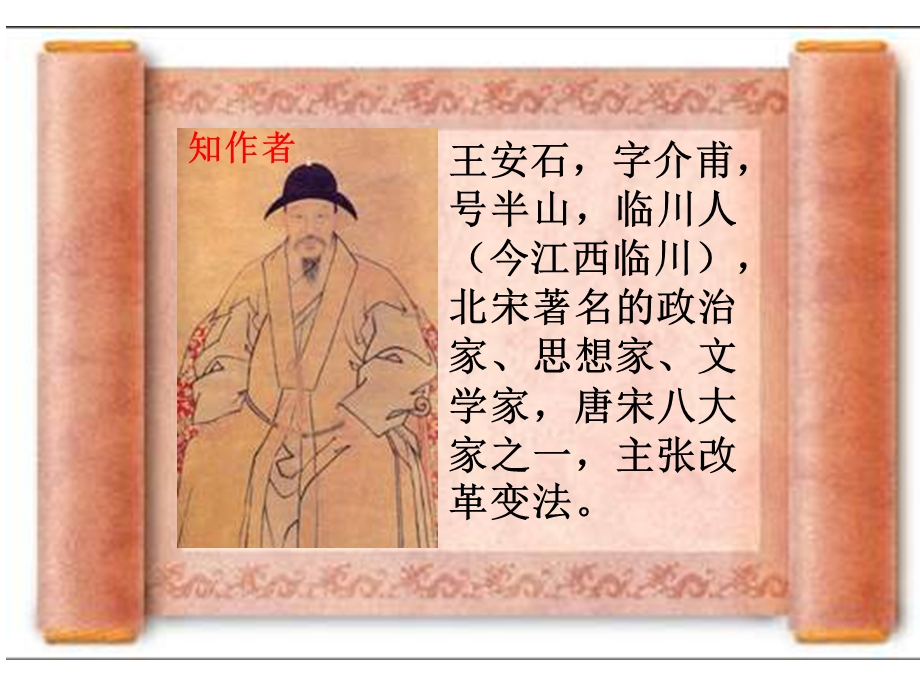 知作者
王安石，字介甫，
号半山，临川人
（今江西临川），
北宋著名的政治
家、思想家、文
学家，唐宋八大
家之一，主张改
革变法。